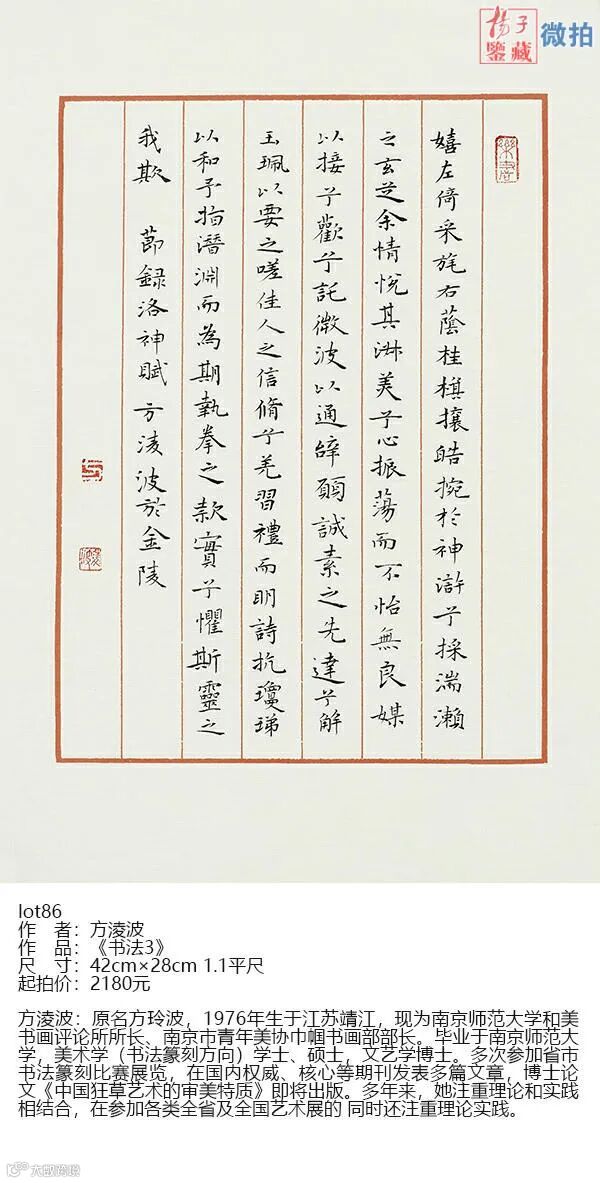 揚子
鑒藏
微拍
嬉左倚采旄右蔭桂旗攘皓捥於神滸兮採湍瀨
之玄芝余情悅其淋美兮心振蕩而不怡無良媒
以接兮歡兮託微波以通辝願誠素之先達兮解
玉珮以要之嗟佳人之信脩兮羌習禮而明詩抗瓊珶
以和予指潛淵而為期執拳之款實兮懼斯靈之
我欺 節録洛神賦 方淩波於金陵
lot86
作 者：方淩波
作 品：《书法3》
尺 寸：42cm×28cm 1.1平尺
起拍价：2180元
方淩波：原名方玲波，1976年生于江苏靖江，现为南京师范大学和美
书画评论所所长、南京市青年美协巾帼书画部部长。毕业于南京师范大
学，美术学（书法篆刻方向）学士、硕士，文艺学博士。多次参加省市
书法篆刻比赛展览，在国内权威、核心等期刊发表多篇文章，博士论
文《中国狂草艺术的审美特质》即将出版。多年来，她注重理论和实践
相结合，在参加各类全省及全国艺术展的 同时还注重理论实践。